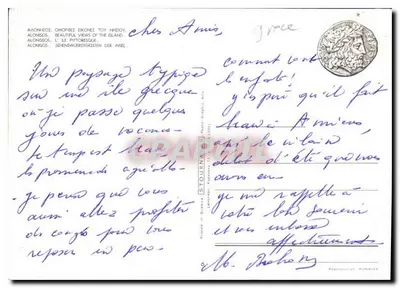 ΑΛΟΝΝΗΣΟΣ. ΟΜΟΡΦΕΣ ΕΙΚΟΝΕΣ ΤΟΥ ΝΗΣΙΟΥ.
ALONISSOS. BEAUTIFUL VIEWS OF THE ISLAND.
ALONISSOS. L'ILE PITTORESQUE.
ALONISSOS. SEHENSWÜRDIGKEITEN DER INSEL.
Grèce
chers Amis,
Un paysage typique
sur une île grecque
où je passe quelques
jours de vacances
le temps est beau
les promenades agréables
je pense que vous
aussi allez profiter
de congés pour vous
reposer un peu
comment vont
les enfants!
j'espère qu'il fait
beau à Amiens
après le vilain
début d'été que nous
avons eu
je me rappelle à
votre bon souvenir
et vous embrasse
affectueusement
STOURNARA